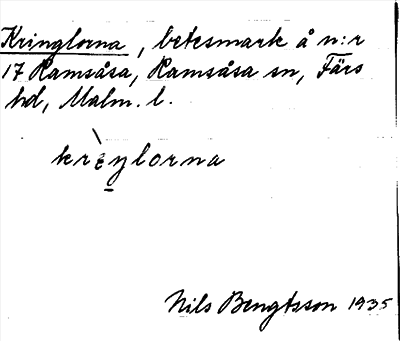 Kringlorna, betesmark å n:r
17 Ramsåsa, Ramsåsa sn, Färs
hd, Malm. l.
Nils Bengtsson 1935